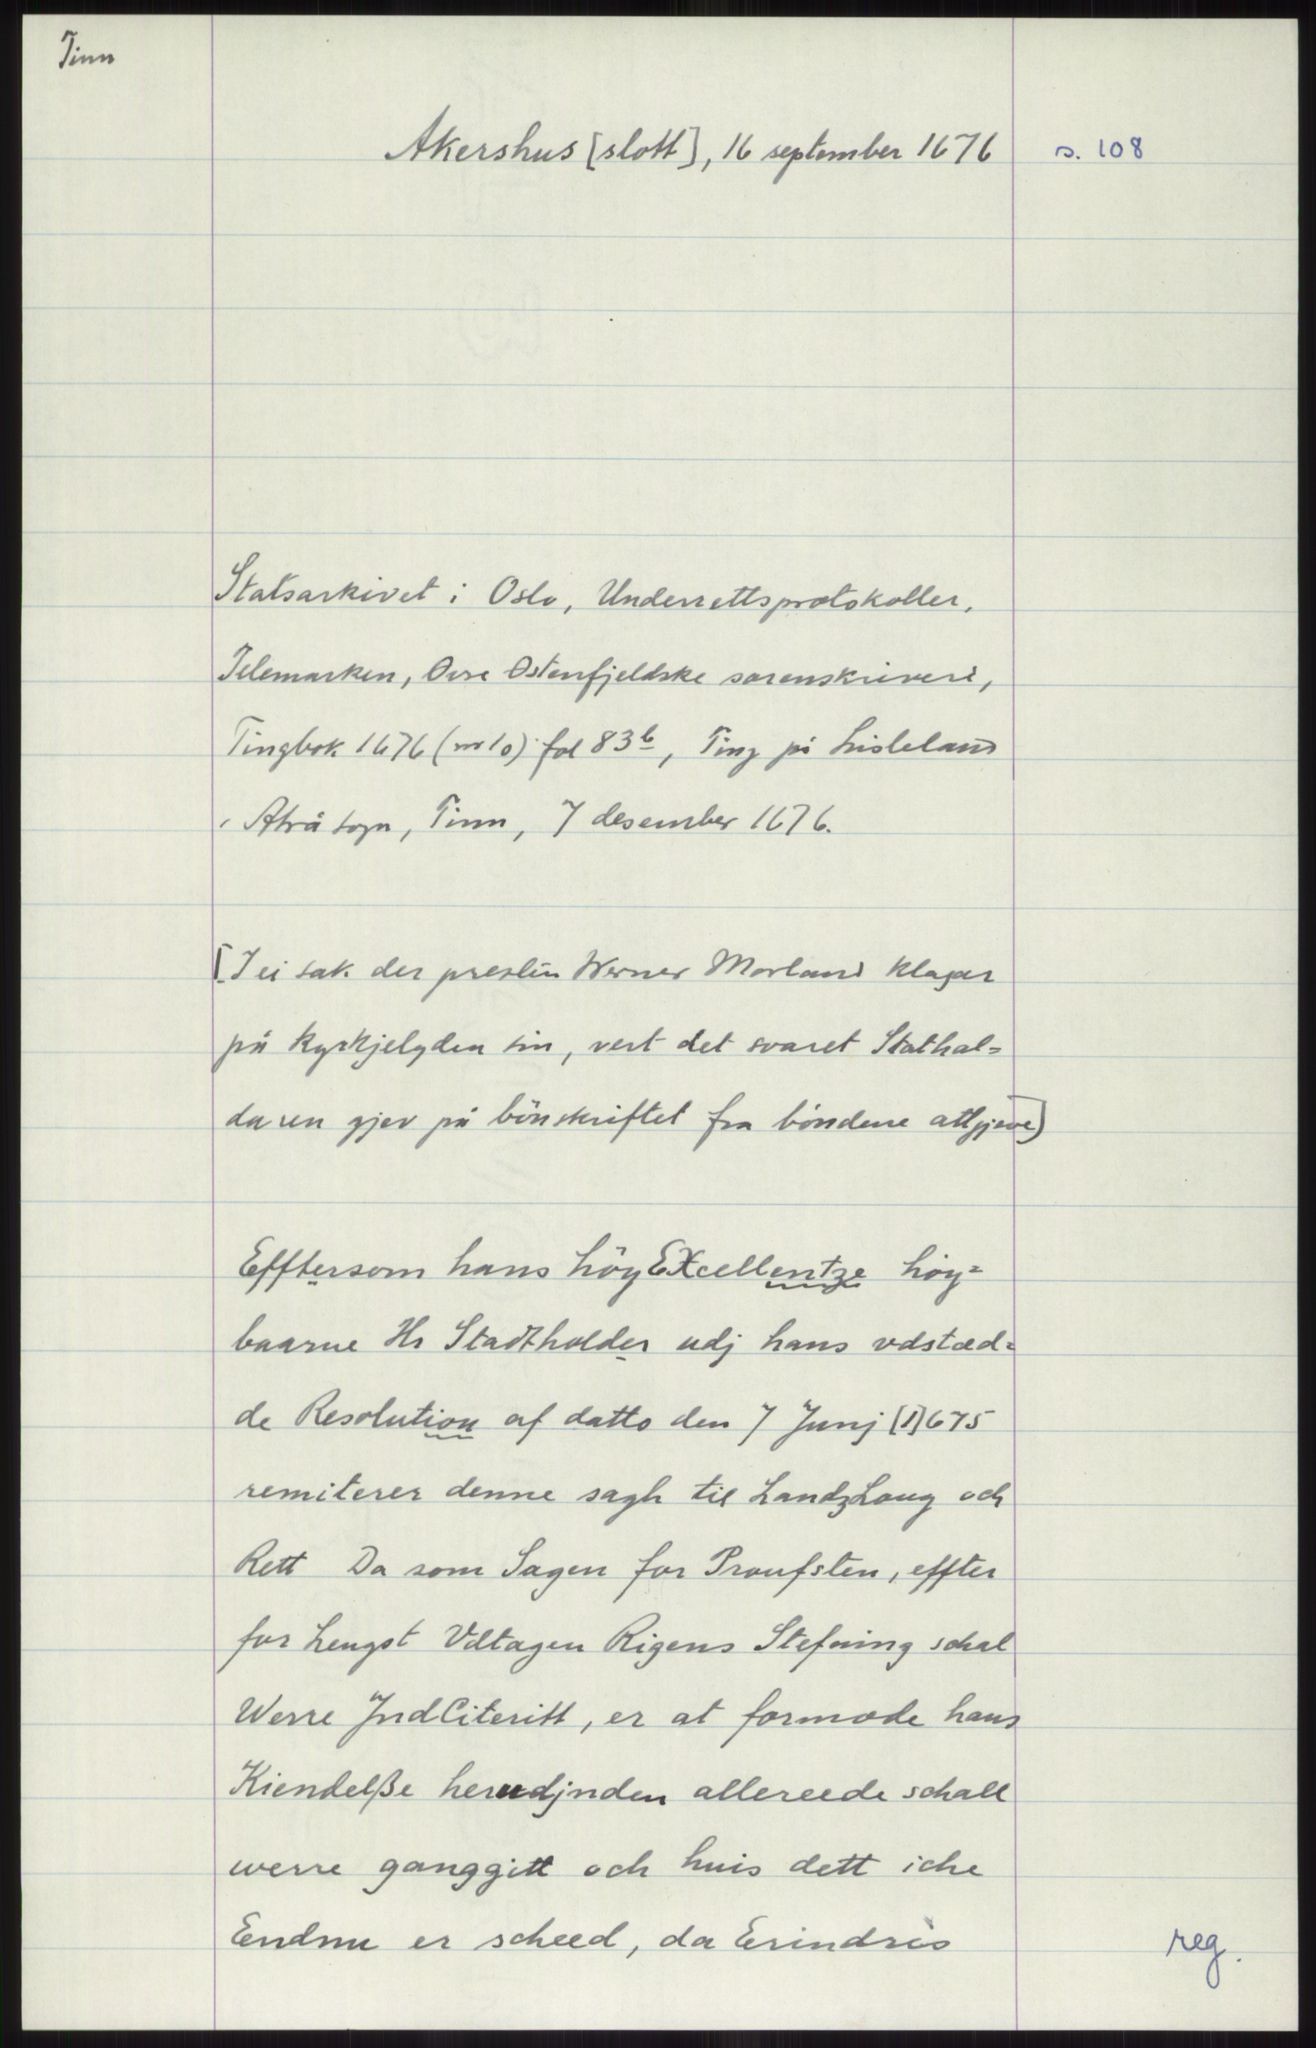 Tinn
Akershus [slott], 16 september 1676
s. 108
Statsarkivet i Oslo, Underrettsprotokoller,
Telemarken, Øvre Østenfjeldske sorenskriveri,
Tingbok 1676 (nr 10) fol 83b, Ting på Lisleland
i Atrå sogn, Tinn, 7 desember 1676.
[I ei sak der presten Werner Morland klagar
på kyrkjelyden sin, vert det svaret Stathal=
daren gjev på bönskriftet fra böndene attgjeve]
Efftersom hans höyEXcellentze höy=
baarne Hr Stadtholder udj hans vdstæd=
de Resolution af datto den 7 Junj [1]675
remiterer denne sagh til LandzLoug och
Rett Da som Sagen for Proufsten, effter
for Lengst Vdtagen Rigens Stefning schal
Werre JndCiteritt, er at formode hans
Kiendelße herudjnden allereede schall
werre ganggitt och huis dett iche
Endnu er scheed, da Erindris
reg.